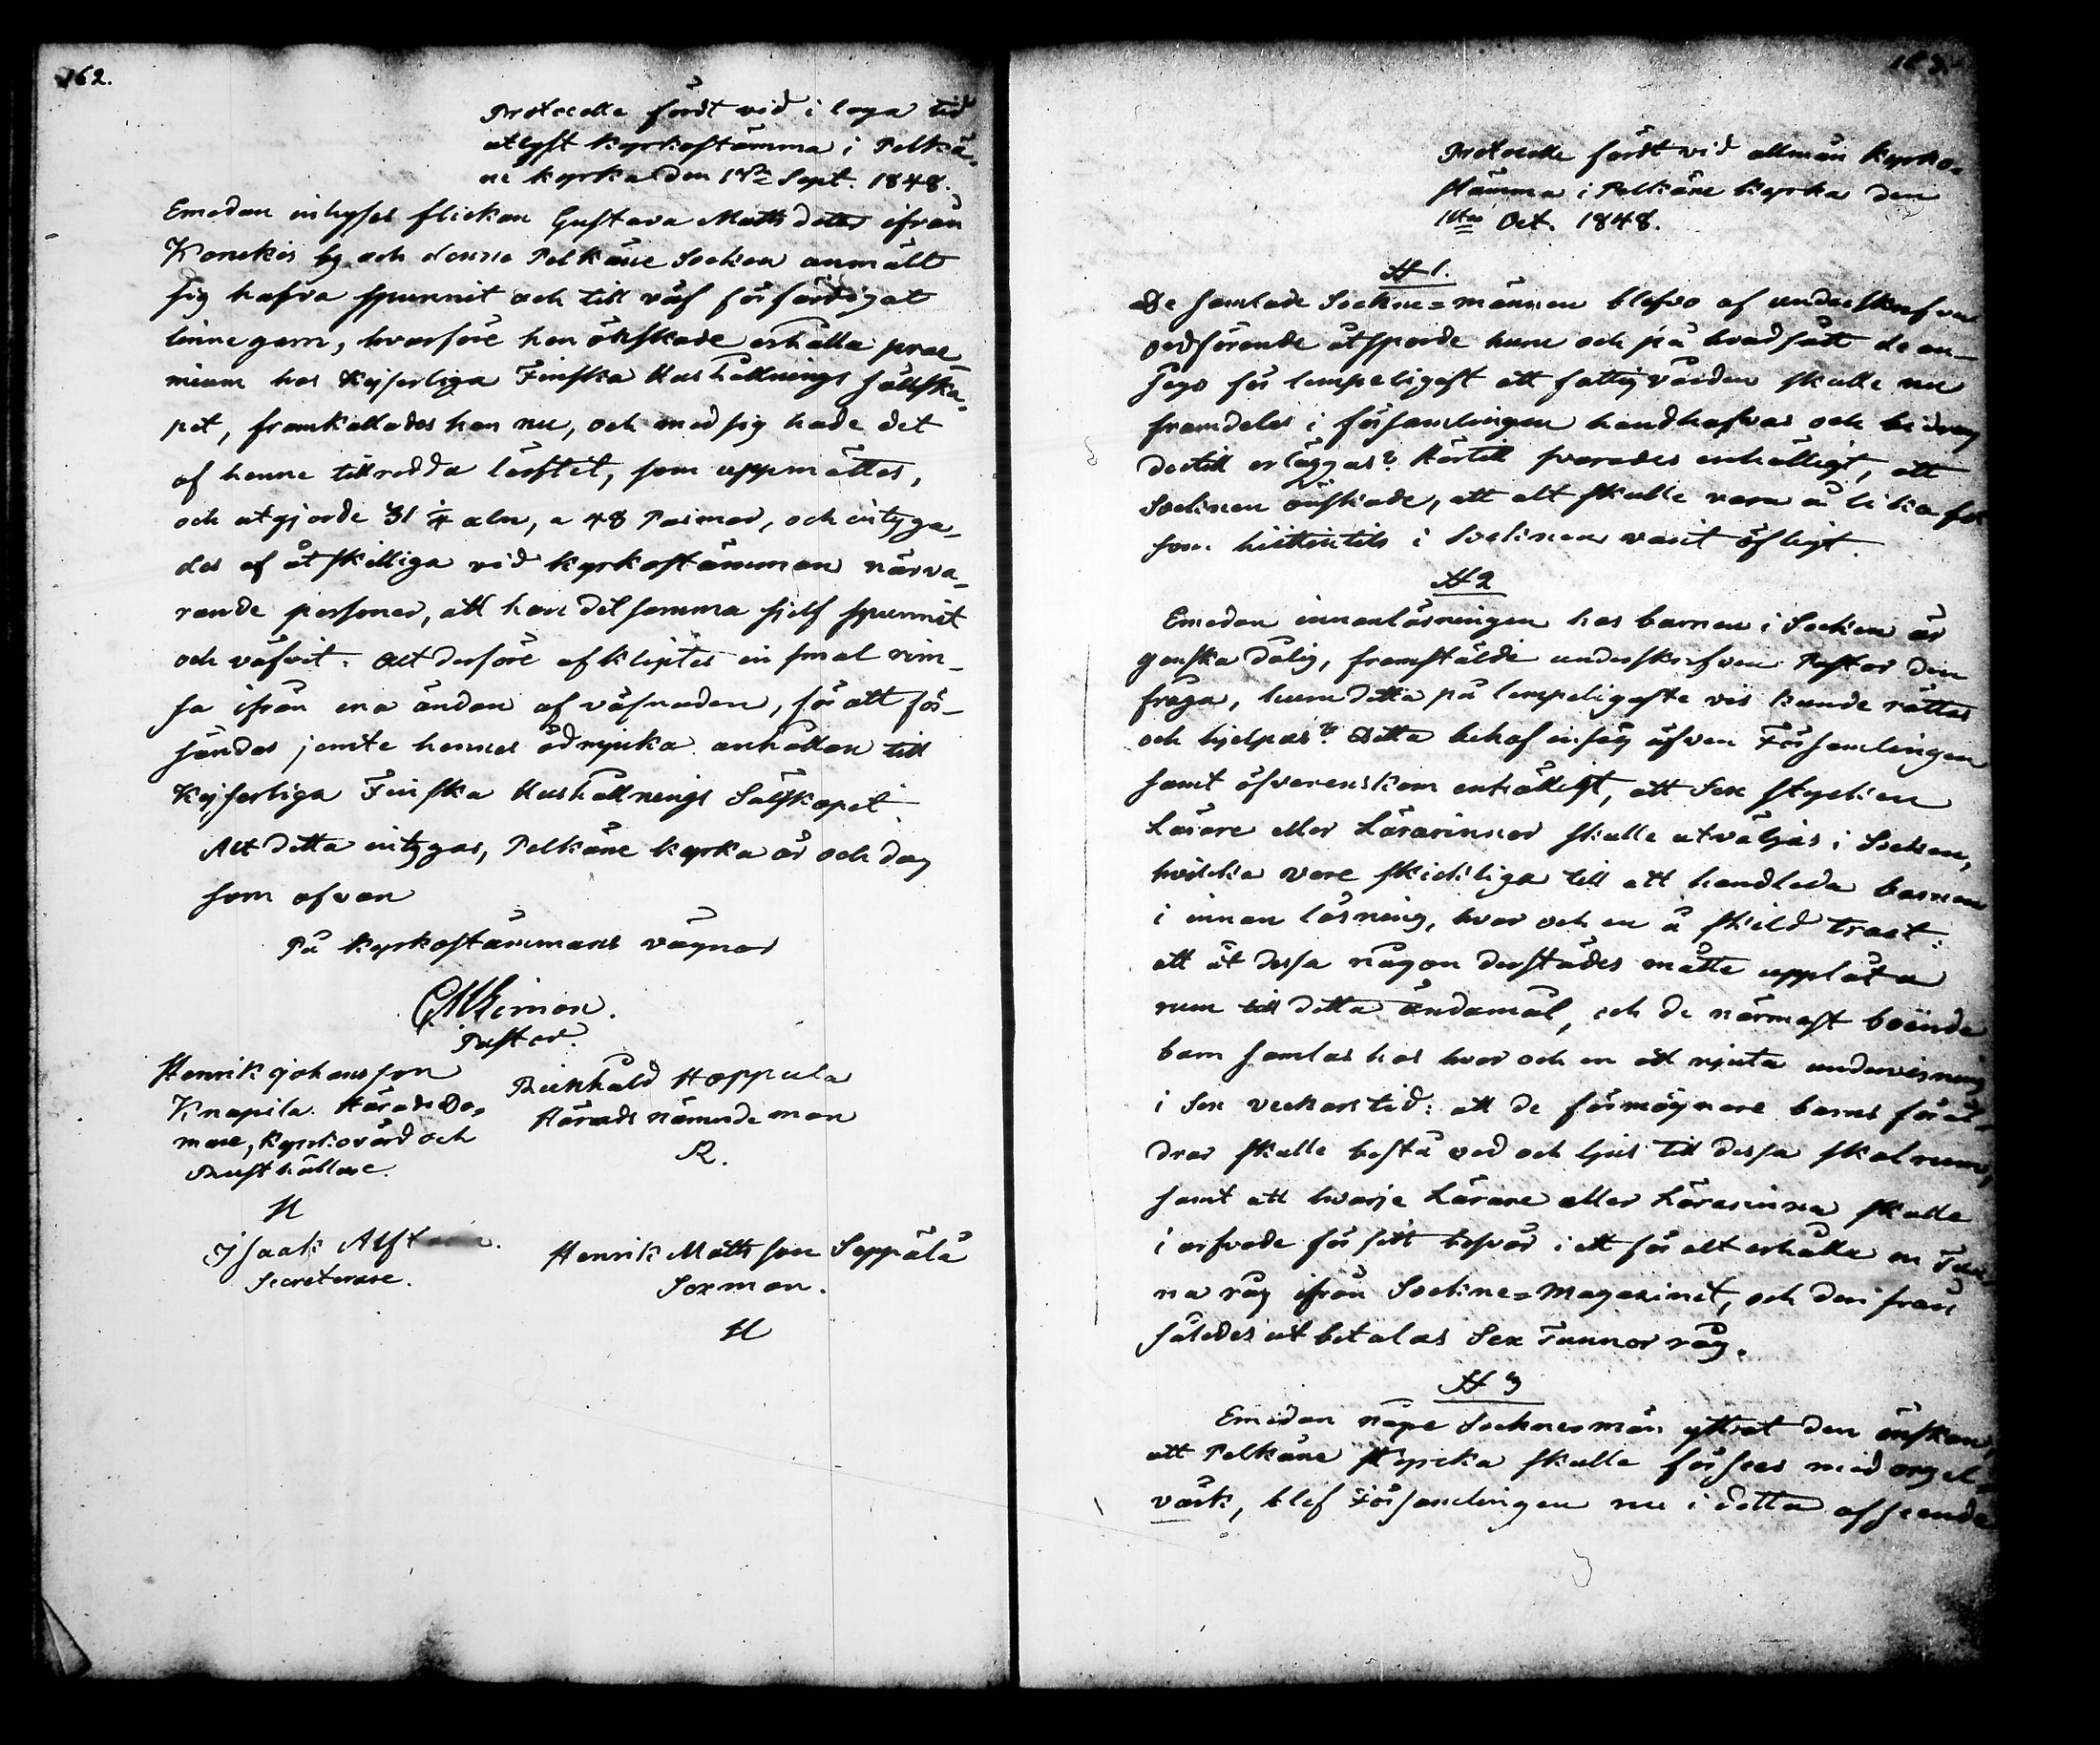 162.
Protocoll fördt vid i laga tid
utlyst kyrkostämma i Pelkä-
ne kyrka den 17de Sept. 1848.
Emedan inhyses flickan Gustava Mattsdotter ifrån
by och denne Pelkäne Socken anmält
sig hafva spunnit och till väf förfärdigat
linnegarn, hvarföre hon önskade erhålla prae
mium hos Kejserliga Finska Hushållnings sällska-
pet, framkallades hon nu, och med sig hade det
af henne tillredda lärftet, som uppmättes,
och utgjorde 31 1/4 aln, a 48 Pasmor, och intyga-
des af åtskilliga vid kyrkostämman närva-
rande personer, att hon det samma sjelf spunnit
och väfvit. Alt derföre afkliptes en smal rim-
sa ifrån ena ändan af väfnaden, för att för-
sändas jemte hennes ödmjuka anhållan till
Kejserliga Finska Hushållnings Sälskapet.
Alt detta intygas, Pelkäne kyrka år och dag
som ofvan
På kyrkostämmans vägnar
Pastor.
Henrik Johansson
Knapila. Härads Do-
mare, Kyrkovärd och
Rusthållare.
H
Reinhold Hoppula
Härads nämndeman
R.
Isaak
Secreterare.
Henrik Mattsson Seppälä
Sexman.
H
163.
Protocoll fördt vid allmän kyrko-
stämma i Pelkäne kyrka den
1sta Oct. 1848.
§ 1.
De samlade Sockne=männen blefvo af underskrefven
ordförande åtsporde huru och på hvad sätt de an-
sågo för lempeligast att fattigvården skulle nu
framdeles i församlingen handhafvas och bidrag
dertill erläggas? Härtill svarades enhälligt, att
Socknen önskade, att alt skulle vara å lika fot
som hittintils i Socknen varit öfligt.
§ 2
Emedan innanläsningen hos barnen i Socken är
ganska dålig, framstälde underskrefven Pastor den
fråga, huru detta på lempeligaste vis kunde rättas
och hjelpas? Detta behof insåg äfven Församlingen
samt öfverenskom enhälligt, att Sex stycken
Lärare eller Lärarinnor skulle utväljas i Socken,
hvilka vore skickliga till att handleda barnen
i innan läsning, hvar och en å skild tract:
att åt dessa någon derstädes måtte upplåta
rum till detta ändamål, och de närmast boende
barn samlas hos hvar och en att njuta undervisning
i sex veckors tid: att de förmögnare barns föräl-
drar skulle bestå ved och ljus till dessa skolrum,
samt att hvarje Lärare eller Lärarinna skulle
i arfvode för sitt besvär i ett för alt erhålla en Tun-
na råg ifrån Sockne=Magazinet, och derifrån
således utbetalas Sex Tunnor råg.
§ 3
Emedan någre Socknemän yttrat den önskan,
att Pelkäne Kyrcka skulle förses med orgel-
värk, blef Församlingen nu i detta afseende